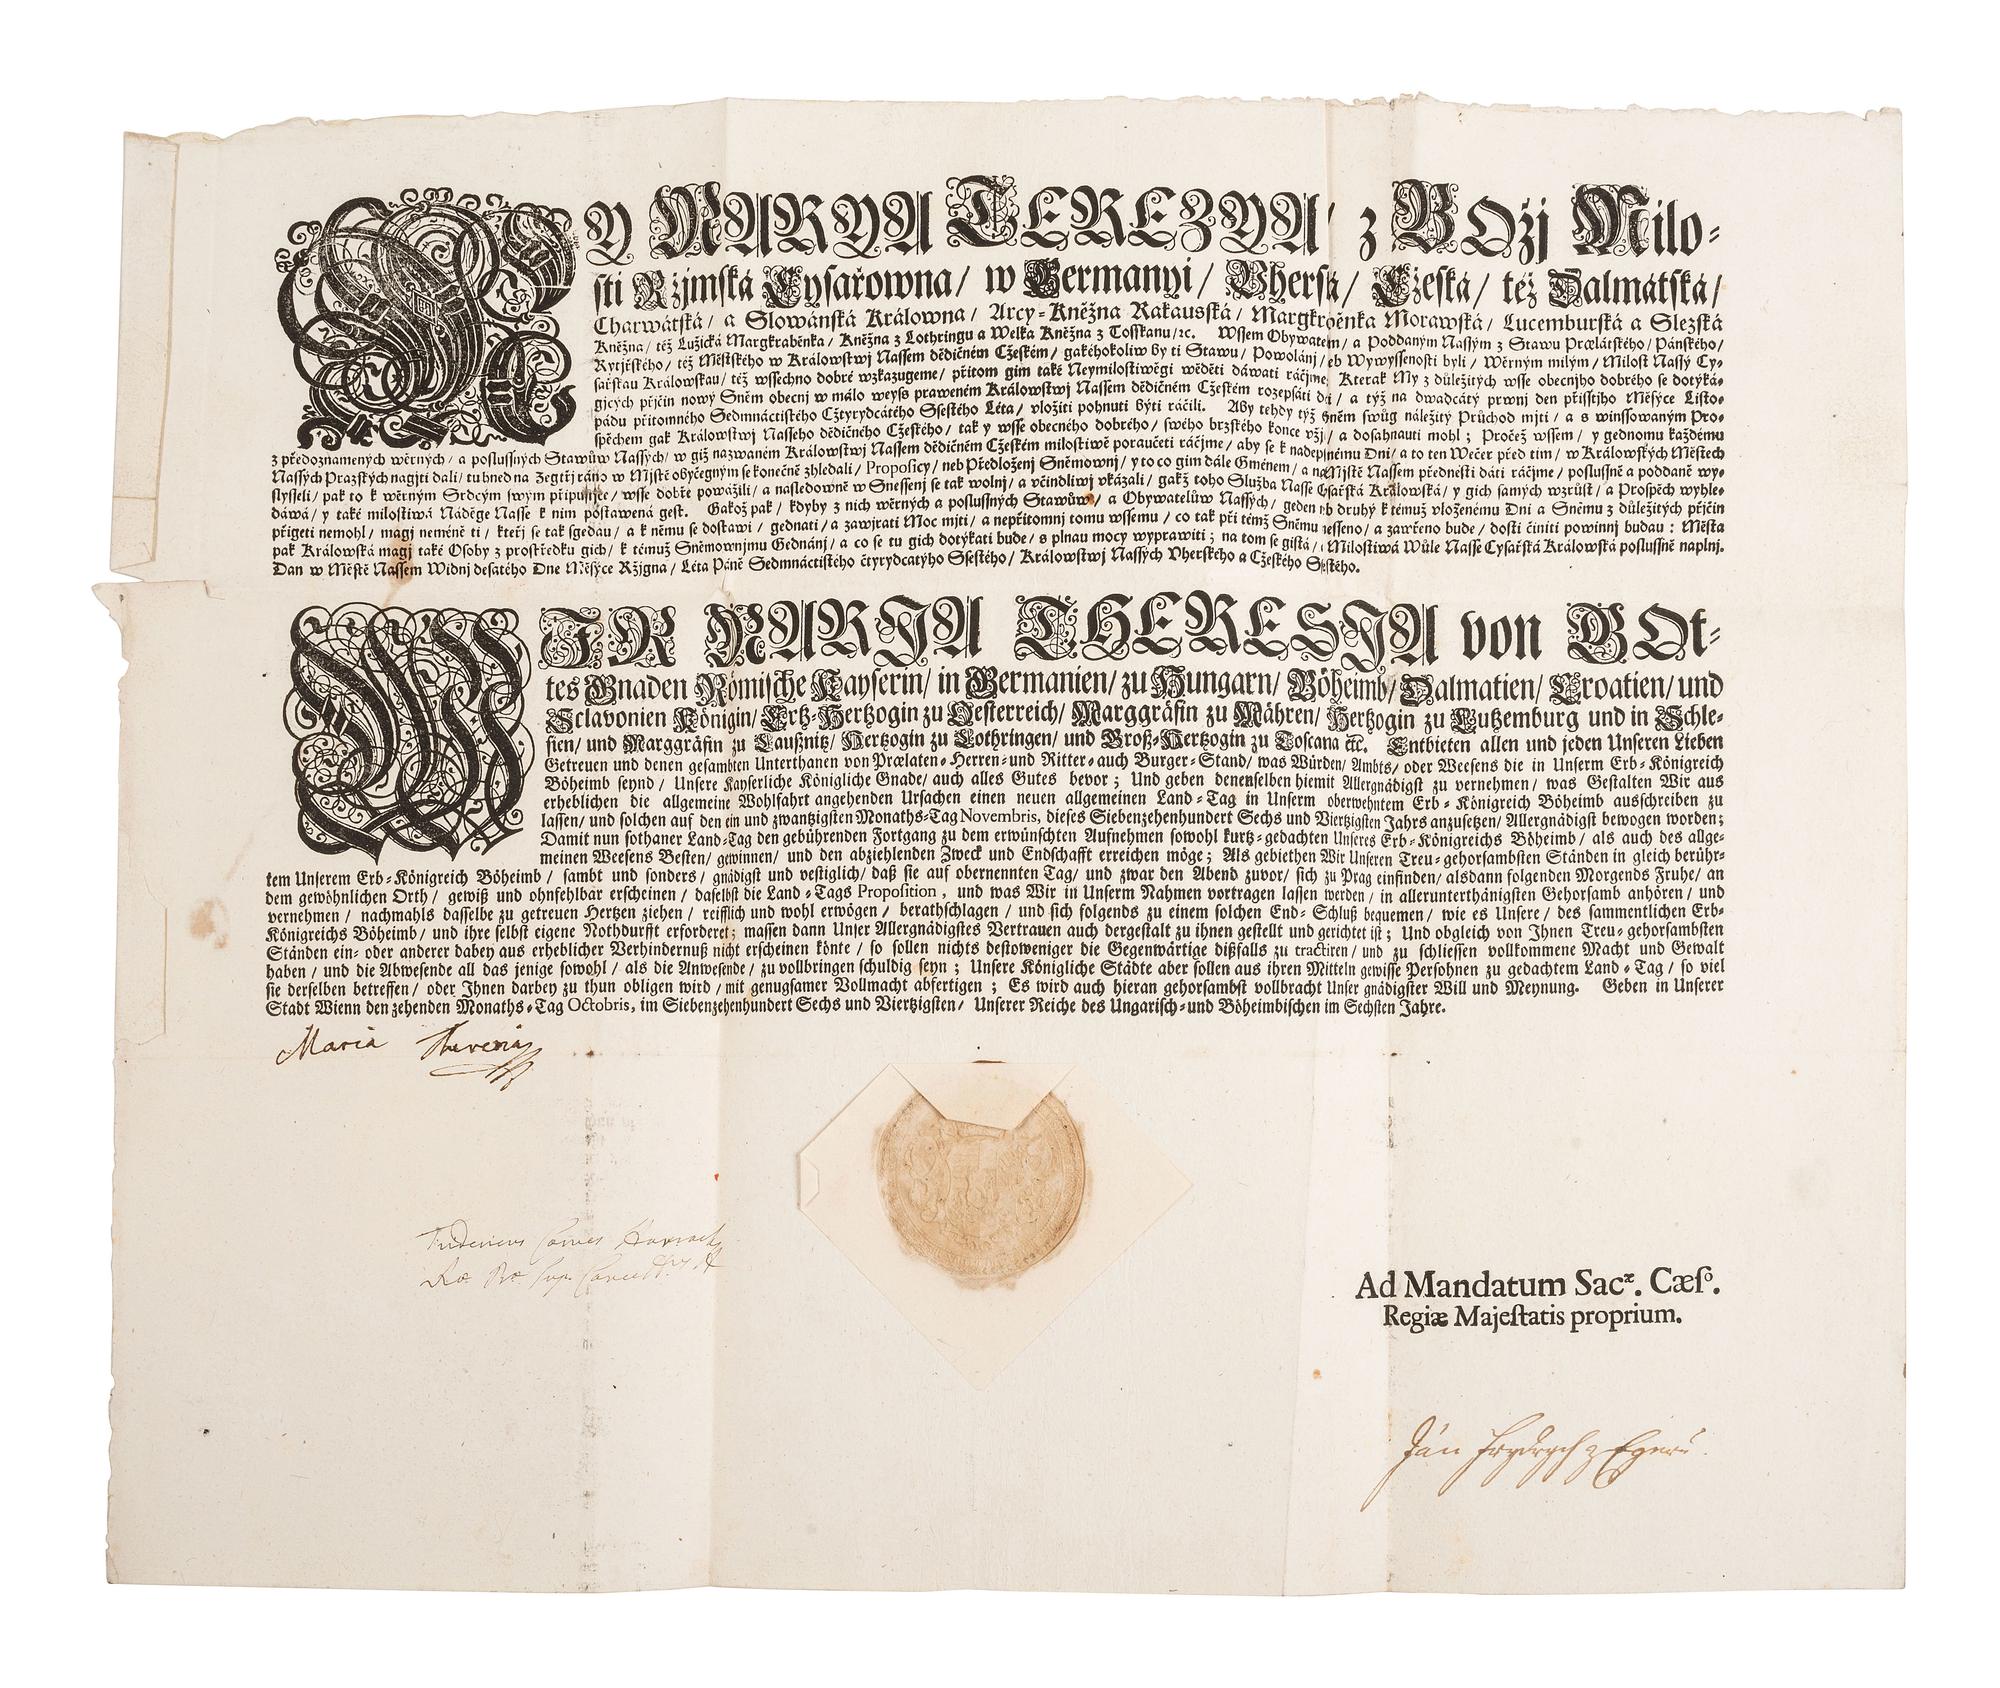 MY MARYA TEREZYA / z BOžj Milo-
sti Ržjmská Cysařowna / w Germanyi / Vherská / Cžeská / též Dalmátská /
Charwátská / a Slowánská Králowna / Arcy-Kněžna Rakauská / Margkraběnka Morawská / Lucemburská a Slezská
Kněžna / též Lužická Margkraběnka / Kněžna z Lothringu a Welká Kněžna z Tosskanu / ꝛc. Wssem Obywatelům / a Poddaným Nassým z Stawu Prælátského / Pánského /
Rytjřského / též Městského w Králowstwj Nassem dědičném Cžeském / gakéhokoliw by ti Stawu / Powolánj neb Wywyssenosti byli / Wěrným milým / Milost Nassý Cy-
sařskau Králowskau / též wssechno dobré wzkazugeme / přitom gim také Neymilostiwěgi wěděti dáwati ráčjme / Kterak My z důležitých wsse obecnjho dobrého se dotýká-
gjcých přjčin nowý Sněm obecnj w málo weyß praweném Králowstwj Nassem dědičném Cžeském rozepsáti dáti / a týž na dwadcátý prwnj den přisstjho Měsýce Listo-
pádu přitomného Sedmnáctistého Cžtyrydcátého Ssestého Léta / vložiti pohnuti býti ráčili. Aby tehdy týž Sněm swůg náležitý Průchod mjti / a s winssowaným Pro-
spěchem gak Králowstwj Nasseho dědičného Cžeského / tak y wsse obecného dobrého / swého brzského konce vžjti / a dosahnauti mohl ; Pročež wssem / y gednomu každému
z předoznamených wěrných / a poslussných Stawůw Nassých / w giž nazwaném Králowstwj Nassem dědičném Cžeském milostiwě poraučeti ráčjme / aby se k nadepsanému Dni / a to ten Wečer před tim / w Králowských Městech
Nassých Pražských nagjti dali / tu hned na Zegtřj ráno w Mjstě obyčegným se konečně zhledali / Proposicy / neb Předloženj Sněmownj / y to co gim dále Gménem / a na Mjstě Nassem přednésti dáti ráčjme / poslussně a poddaně wy-
slysseli / pak to k wěrným Srdcým swým připustjce / wsse dobře powážili / a následowně w Snessenj se tak wolnj / a včindliwj vkázali / gakž toho Služba Nasse Cysařská Králowská / y gich samých wzrůst / a Prospěch wyhle-
dáwá / y také milostiwá Náděge Nasse k nim postawená gest. Gakož pak / kdyby z nich wěrných a poslussných Stawůw / a Obywatelůw Nassých / geden neb druhý k témuž vloženému Dni a Sněmu z důležitých přjčin
přigeti nemohl / magj neméně ti / kteřj se tak sgedau / a k němu se dostawj / gednati / a zawjrati Moc mjti / a nepřitomnj tomu wssemu / co tak při témž Sněmu snesseno / a zawřeno bude / dosti činiti powinnj budau : Města
pak Králowská magj také Osoby z prostředku gich / k témuž Sněmownjmu Gednánj / a co se tu gich dotýkati bude / s plnau mocy wyprawiti ; na tom se gistá / a Milostiwá Wůle Nasse Cysařská Králowská poslussně naplnj.
Dan w Městě Nassem Widnj desatého Dne Měsýce Ržjgna / Léta Páně Sedmnáctistého čtyrydcatýho Ssestého / Králowstwj Nassých Vherského a Cžeského Ssestého.
WIR MARJA THERESJA von GOt-
tes Gnaden Römische Kayserin / in Germanien / zu Hungarn / Böheimb / Dalmatien / Croatien / und
Sclavonien Königin / Ertz-Hertzogin zu Oesterreich / Marggräfin zu Mähren / Hertzogin zu Lutzemburg und in Schle-
sien / und Marggräfin zu Laußnitz / Hertzogin zu Lothringen / und Groß-Hertzogin zu Toscana ꝛc. Entbieten allen und jeden Unseren Lieben
Getreuen und denen gesambten Unterthanen von Prælaten-Herren-und Ritter-auch Burger-Stand / was Würden / Ambts / oder Weesens die in Unserm Erb-Königreich
Böheimb seynd / Unsere Kayserliche Königliche Gnade / auch alles Gutes bevor ; Und geben denenselben hiemit Allergnädigst zu vernehmen / was Gestalten Wir aus
erheblichen die allgemeine Wohlfahrt angehenden Ursachen einen neuen allgemeinen Land-Tag in Unserm oberwehntem Erb-Königreich Böheimb ausschreiben zu
lassen / und solchen auf den ein und zwantzigsten Monaths-Tag Novembris, dieses Siebenzehenhundert Sechs und Viertzigsten Jahrs anzusetzen / Allergnädigst bewogen worden ;
Damit nun sothaner Land-Tag den gebührenden Fortgang zu dem erwünschten Aufnehmen sowohl kurtz-gedachten Unseres Erb-Königreichs Böheimb / als auch des allge-
meinen Weesens Besten / gewinnen / und den abziehlenden Zweck und Endschafft erreichen möge ; Als gebiethen Wir Unseren Treu-gehorsambsten Ständen in gleich berühr-
tem Unserem Erb-Königreich Böheimb / sambt und sonders / gnädigst und vestiglich / daß sie auf obernennten Tag / und zwar den Abend zuvor / sich zu Prag einfinden / alsdann folgenden Morgends Fruhe / an
dem gewöhnlichen Orth / gewiß und ohnfehlbar erscheinen / daselbst die Land-Tags Proposition, und was Wir in Unserm Nahmen vortragen lassen werden / in allerunterthänigsten Gehorsamb anhören / und
vernehmen / nachmahls dasselbe zu getreuen Hertzen ziehen / reifflich und wohl erwögen / berathschlagen / und sich folgends zu einem solchen End-Schluß bequemen / wie es Unsere / des sammentlichen Erb-
Königreichs Böheimb / und ihre selbst eigene Nothdurfft erforderet ; massen dann Unser Allergnädigstes Vertrauen auch dergestalt zu ihnen gestellt und gerichtet ist ; Und obgleich von Ihnen Treu-gehorsambsten
Ständen ein- oder anderer dabey aus erheblicher Verhindernuß nicht erscheinen könte / so sollen nichts destoweniger die Gegenwärtige dißfalls zu tractiren / und zu schliessen vollkommene Macht und Gewalt
haben / und die Abwesende all das jenige sowohl / als die Anwesende / zu vollbringen schuldig seyn ; Unsere Königliche Städte aber sollen aus ihren Mitteln gewisse Persohnen zu gedachtem Land-Tag / so viel
sie derselben betreffen / oder Ihnen darbey zu thun obligen wird / mit genugsamer Vollmacht abfertigen ; Es wird auch hieran gehorsambst vollbracht Unser gnädigster Will und Meynung. Geben in Unserer
Stadt Wienn den zehenden Monaths-Tag Octobris, im Siebenzehenhundert Sechs und Viertzigsten / Unserer Reiche des Ungarisch-und Böheimbischen im Sechsten Jahre.
Maria Theresia
Fridericus Comes Harrach
Ad Mandatum Sacæ. Cæſo.
Regiæ Majeſtatis proprium.
Ján Frydrych z